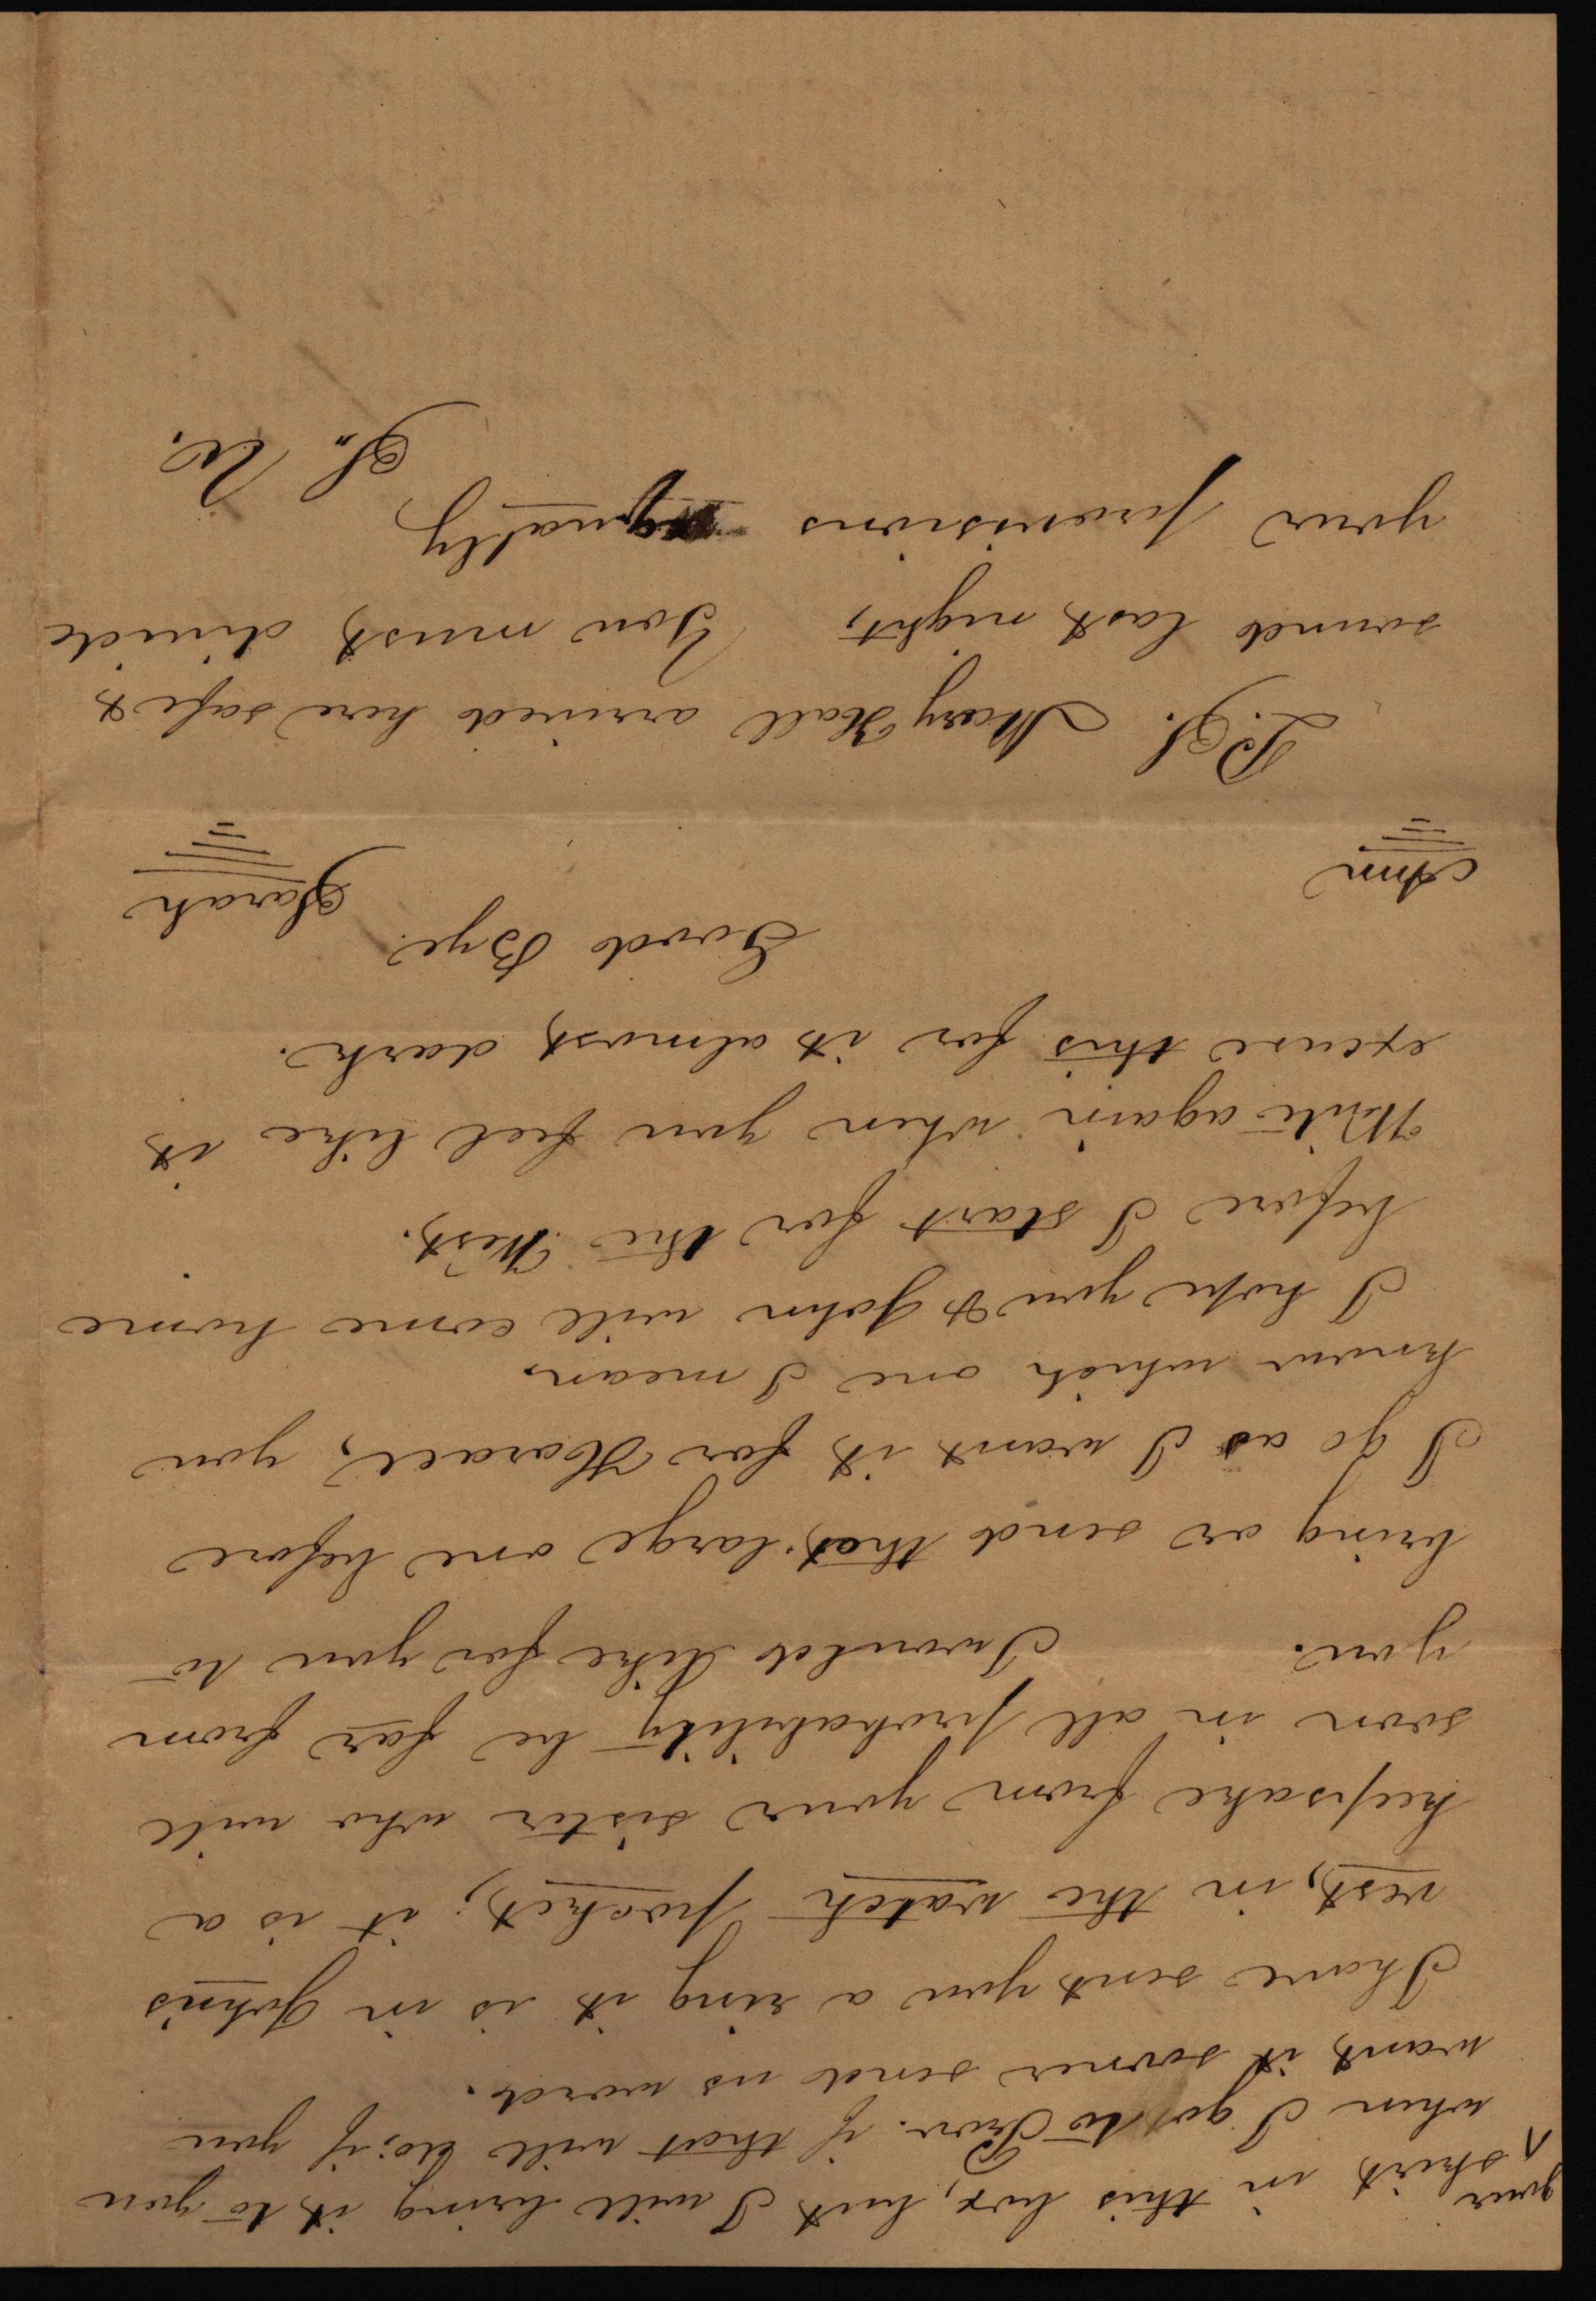 your skirt in this box, but I will bring it to you
when I go to Prov. if that will do; if you
want it sooner send us word.
I have sent you a ring it is in John's
vest, in the watch pocket; it is a
keepsake from your sister who will
soon in all probability be far from
you. I would like for you to
bring or send that large one before
I go as I want it for Horace, you
know which one I mean.
I hope you & John will come home
before I start for the West.
Write again when you feel like it
excuse this for it almost dark.
Good Bye.
Ann Sarah
P.S. Mary Hall arrived here safe &
sound last night, You must divide
your provisions equally
S. W.